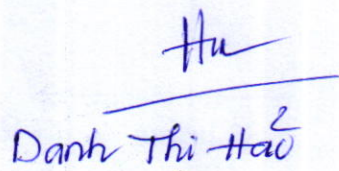 Hu
Danh Thi Hảo